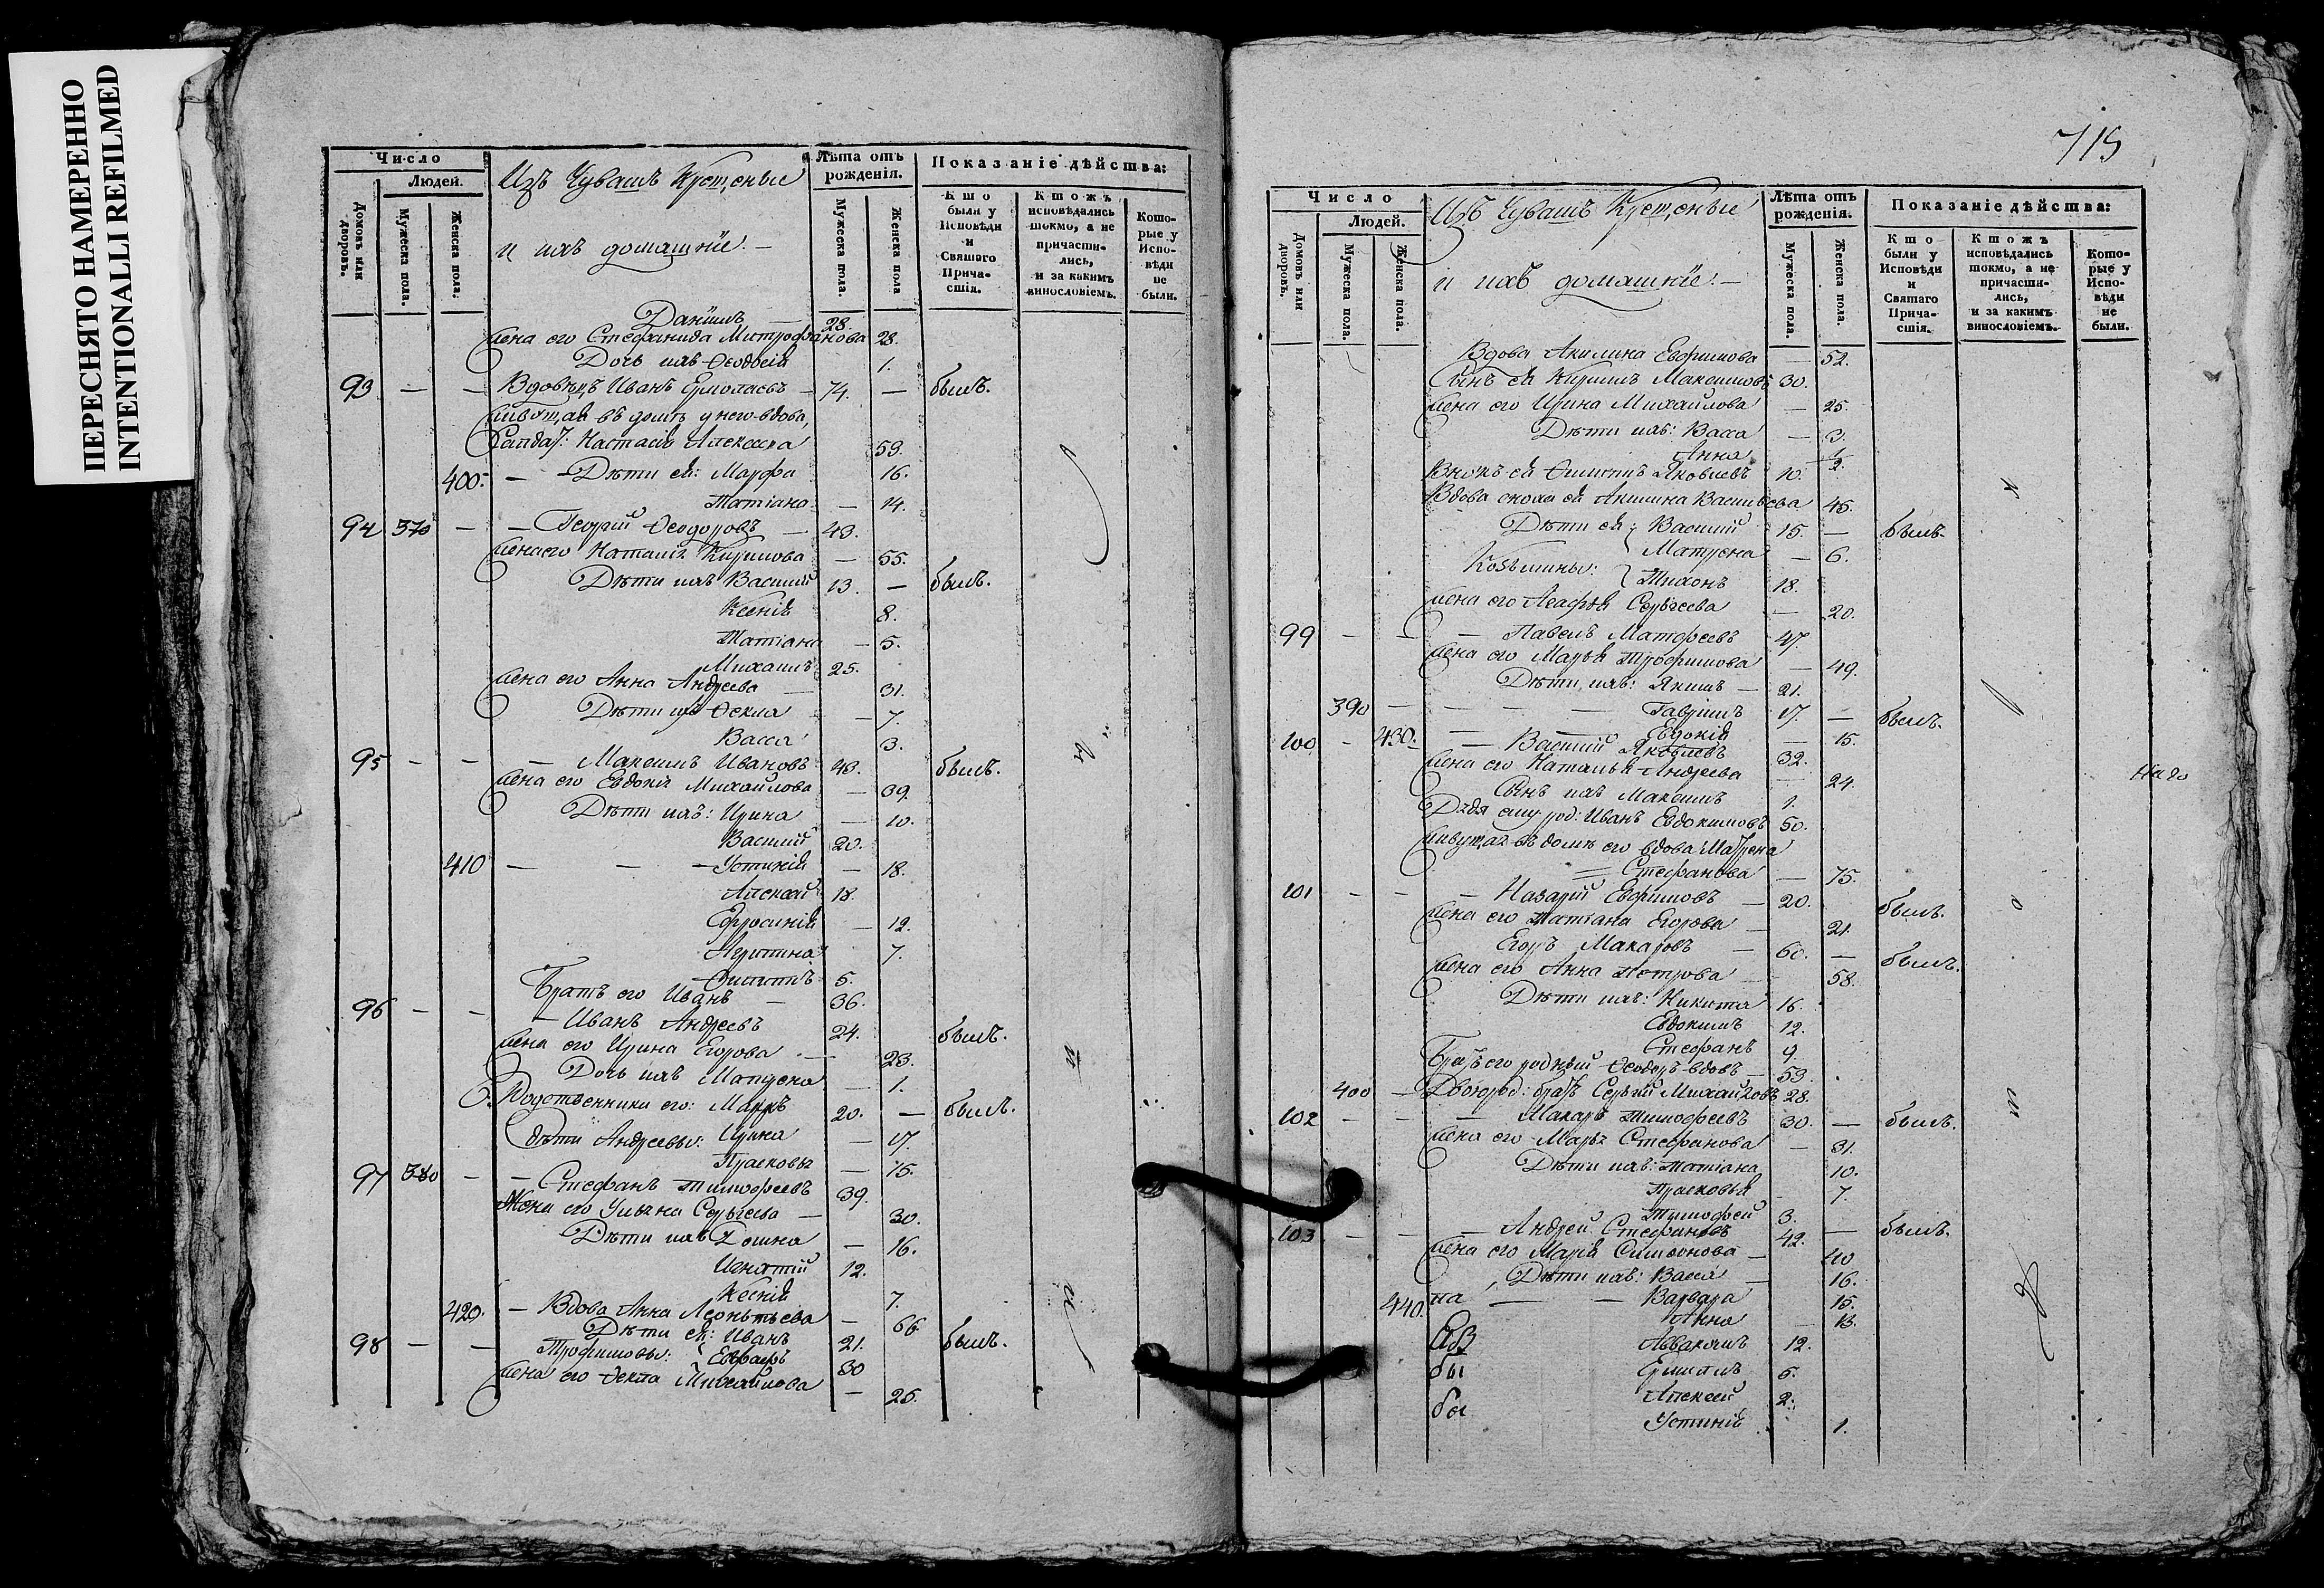 ПЕРЕСНЯТО НАМЕРЕННО
INTENTIONALLI REFILMED
Число
Людей.
Домовъ или дворовъ.
Мужеска пола.
Женска пола.
Изъ Чувашъ Крещеные
и ихъ домашніе:
Лѣта отъ рожденія.
Мужеска пола.
Женска пола
Показаніе дѣйства:
Кто были у Исповѣди и Святаго Причастія.
Ктожъ исповѣдались токмо, а не причастились, и за какимъ винословіемъ.
Которые у Исповѣди не были.
Даніилъ — 28.
жена его Стефанида Митрофанова 28.
Дочь ихъ Ѳеодосія 1.
93 — — Вдовецъ Иванъ Ермолаевъ — 74. — былъ.
живущая въ домѣ у него вдова,
Настасія Алексѣева 59.
400. — Дѣти ея: Марфа 16.
Татіана — 14.
94 370 — — Георгій Ѳеодоровъ — 43.
жена его Наталія Кирилова — 55.
Дѣти ихъ Василій 13. — былъ.
Ксенія 8.
Татіана — 5.
Михаилъ 25.
жена его Анна Андреева — 31.
Дѣти ихъ Ѳекла — 7.
Васса 3.
95 — — — Максимъ Ивановъ 43. былъ.
жена его Евдокія Михайлова — 39.
Дѣти ихъ: Ирина — 10.
Василій 20.
410 — — — Устинія — 18.
Алексѣй 18.
Ефросинія — 12.
7.
Филипъ 5.
Братъ его Иванъ — 36.
96 — — — Иванъ Андреевъ 24. былъ.
жена его Ирина Егорова — 23.
Дочь ихъ Матрена — 1.
Родственники его: Маркъ 20. — былъ.
дѣти Андреевы: Ирина — 17.
Прасковья — 15.
97 380 — — Стефанъ Тимофеевъ 39.
Жена его Ульяна Сергѣева — 30.
Дѣти ихъ Домна — 16.
Игнатій 12.
Ксенія 7.
420. — Вдова Анна Леонтьева — 66
98 — — Дѣти ея: Иванъ 21. былъ.
Трофимовы: Евграфъ 30
жена его Ѳекла Михайлова — 25.
715
Число
Людей.
Домовъ или дворовъ.
Мужеска пола.
Женска пола.
Изъ Чувашъ Крещеные
и ихъ домашніе:
Лѣта отъ рожденія.
Мужеска пола.
Женска пола.
Показаніе дѣйства:
Кто были у Исповѣди и Святаго Причастія.
Ктожъ исповѣдались токмо, а не причастились, и за какимъ винословіемъ.
Которые у Исповѣди не были.
Вдова Акилина Евфимова — 52.
Сынъ ея Кирилъ Максимовъ 30.
жена его Ирина Михайлова — 25.
Дѣти ихъ: Васса — 3.
Анна 1/2.
Внукъ ея Филипъ Яковлевъ 10.
Вдова сноха ея Акилина Васильева 45.
Дѣти ея: Василій 15. — былъ.
Матрена — 6.
Козьмины: Тихонъ 18.
жена его Агафья Сергѣева — 20.
99 — — — Павелъ Матфеевъ 47.
жена его Марья Трофимова — 49.
Дѣти ихъ: Якимъ — 21.
390 — — — — Гаврилъ 17. — былъ.
430. — — Евдокія — 15.
100 — — Василій Яковлевъ 32.
жена его Наталья Андреева — 24.
Сынъ ихъ Максимъ 1.
Дядя ему род: Иванъ Евдокимовъ 50.
живущая въ домѣ его вдова Матрена
Стефанова — 75.
101 — — — Назарій Евфимовъ — 20. былъ.
жена его Татіана Егорова — 21.
Егоръ Макаровъ — 60. — былъ.
жена его Анна Петрова — 58.
Дѣти ихъ: Никита 16.
Евдокимъ 12.
Стефанъ 9.
Братъ его родный Ѳеодоръ вдовъ — 53.
400 — Двоюрод: братъ Сергій Михайловъ 28.
102 — — — Макаръ Тимофеевъ 30. — былъ.
жена его Марья Стефанова — 31.
Дѣти ихъ: Татіана 10.
Прасковья — 7.
Тимофей 3.
103 — — — Андрей Стефановъ 42. — былъ.
жена его Марія Симеонова — 40
Дѣти ихъ: Васса — 16.
440. на — — Варвара 15.
Анна — 13.
Аввакумъ 12.
бы Ермилъ 5.
бы Алексѣй 2.
Устинія 1.